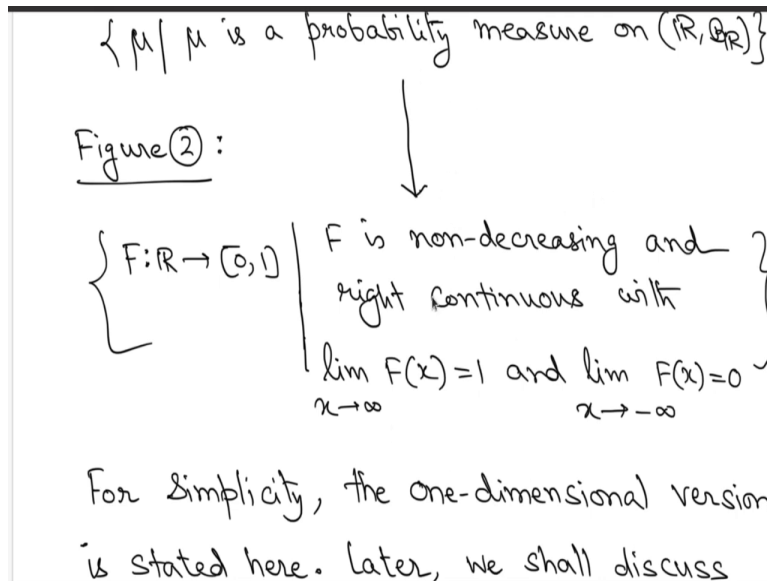 { μ | μ is a probability measure on (ℝ, 𝓑_ℝ) }
Figure ② :
{ F: ℝ → [0,1] | F is non-decreasing and }
right continuous with
lim F(x) = 1 and lim F(x) = 0
x→∞ x→-∞
For simplicity, the one-dimensional version
is stated here. Later, we shall discuss